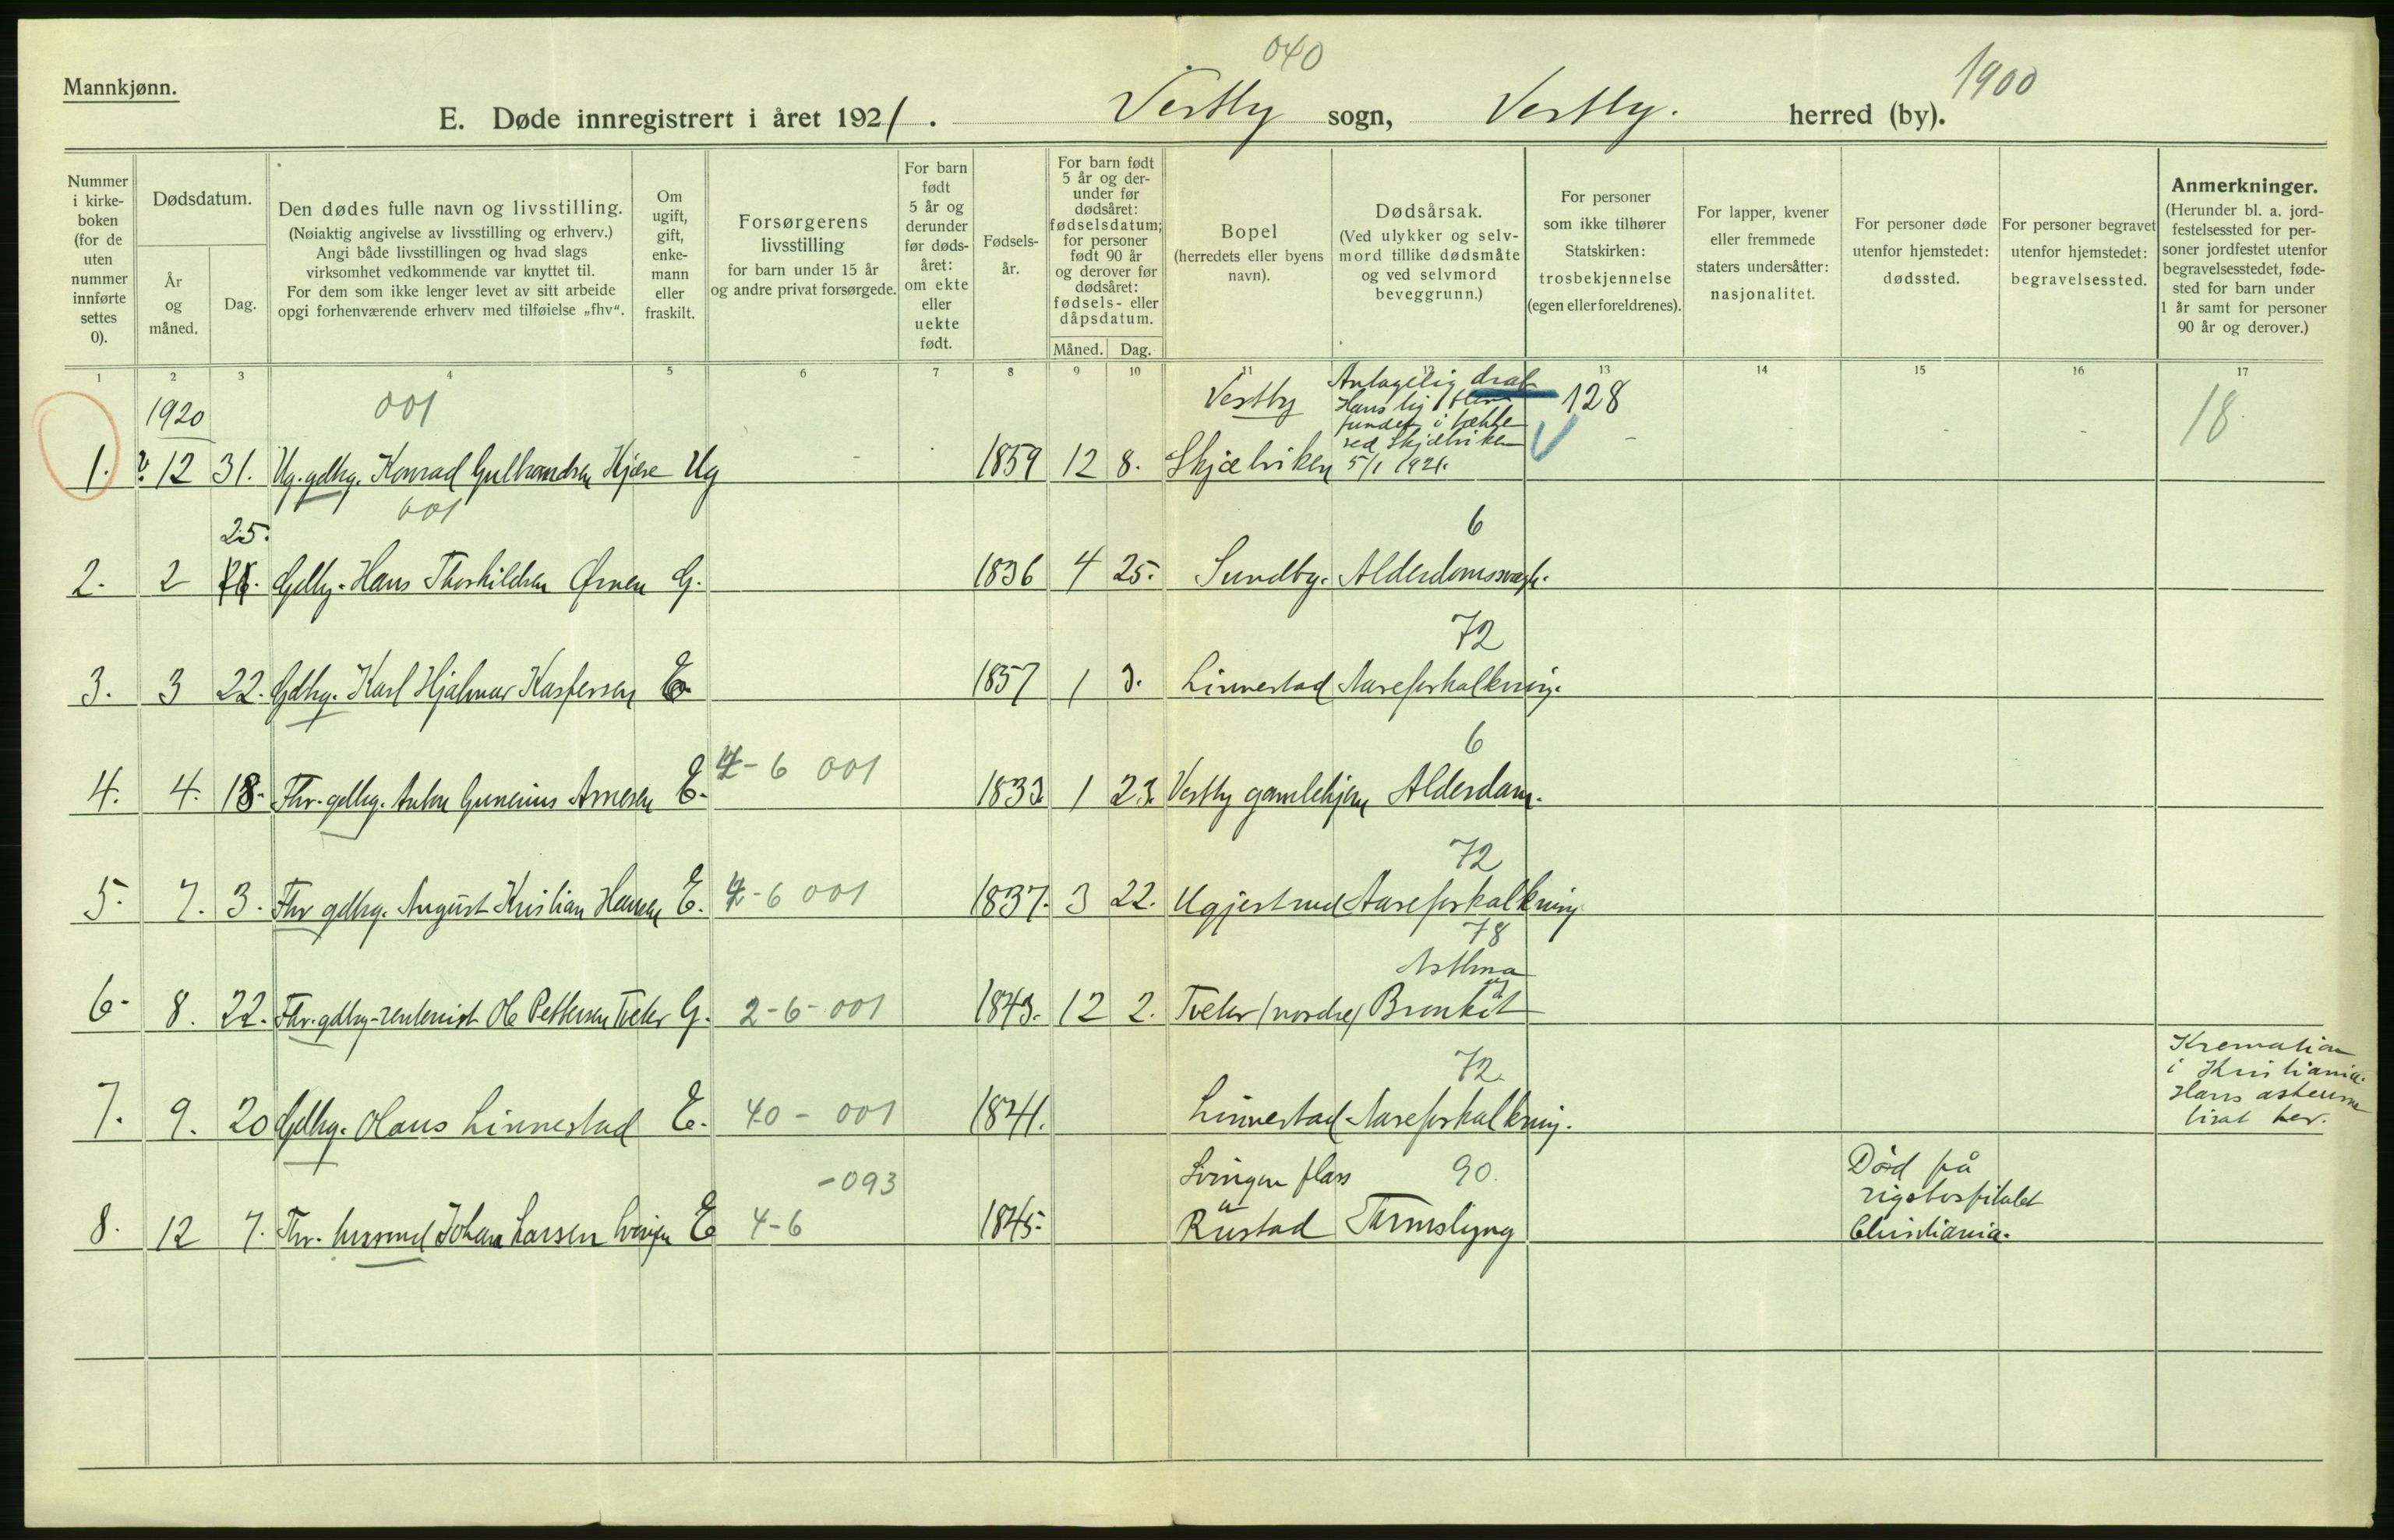 040
1900
Mannkjønn.
E. Døde innregistrert i året 1921. Vestby sogn, Vestby. herred (by).
Nummer i kirke-boken (for de uten nummer innførte settes 0).
Dødsdatum.
År og måned.
Dag.
Den dødes fulle navn og livsstilling.
(Nøiaktig angivelse av livsstilling og erhverv.)
Angi både livsstillingen og hvad slags
virksomhet vedkommende var knyttet til.
For dem som ikke lenger levet av sitt arbeide
opgi forhenværende erhverv med tilføielse „fhv“.
Om ugift, gift, enke-mann eller fraskilt.
Forsørgerens livsstilling
for barn under 15 år
og andre privat forsørgede.
For barn født 5 år og derunder før døds-året: om ekte eller uekte født.
Fødsels-år.
For barn født 5 år og der-under før dødsåret: fødselsdatum; for personer født 90 år og derover før dødsåret: fødsels- eller dåpsdatum.
Måned. Dag.
Bopel
(herredets eller byens navn).
Dødsårsak.
(Ved ulykker og selv-mord tillike dødsmåte og ved selvmord beveggrunn.)
For personer som ikke tilhører Statskirken: trosbekjennelse (egen eller foreldrenes).
For lapper, kvener eller fremmede staters undersåtter: nasjonalitet.
For personer døde utenfor hjemstedet: dødssted.
For personer begravet utenfor hjemstedet: begravelsessted.
Anmerkninger.
(Herunder bl. a. jord-festelsessted for per-soner jordfestet utenfor begravelsesstedet, føde-sted for barn under 1 år samt for personer 90 år og derover.)
1 2 3 4 5 6 7 8 9 10 11 12 13 14 15 16 17
1920 001 Vestby Antagelig drab
Hans lig blev 128 18
fundet i bække
ved Skjælviken
1. 12 31. Ug. gdbg. Konrad Gulbrandsen Ug 1859 12 8. Skjælviken 5/1 1921.
001
25. 6
2. 2 Gdbg. Hans Thorkildsen G. 1836 4 25. Sundby. Alderdomssvagh.
72
3. 3 22. Gdbg. Karl Hjalmar Kaspersen E. 1857 1 3. Linnestad Aareforkalkning.
-6 001 6
4. 4. 18. Fhv. gdbg. Anton Gunerius Arnesen E. 1833 1 23. Vestby gamlehjem Alderdom.
72
5. 7. 3. Fhv gdbg. August Kristian Hansen E. -6 001 1837. 3 22. Aareforkalkning
78
Asthma
og
6. 8. 22. Fhv. gdbg-rentenist Ole Pettersen Tveter G. 2-6-001 1843. 12 2. Tveter (nordre) Bronkit
Kremation
72. i Kristiania.
Hans
7. 9. 20 Gdbg. Olaus Linnestad E. 40 - 001 1841. Linnestad Aareforkalkning.
-093 plass 90. Død på
rigshospitalet
8. 12 7. Fhv. husmand Johan Larsen E 4-6 1845. Rustad Tarmslyng Christiania.